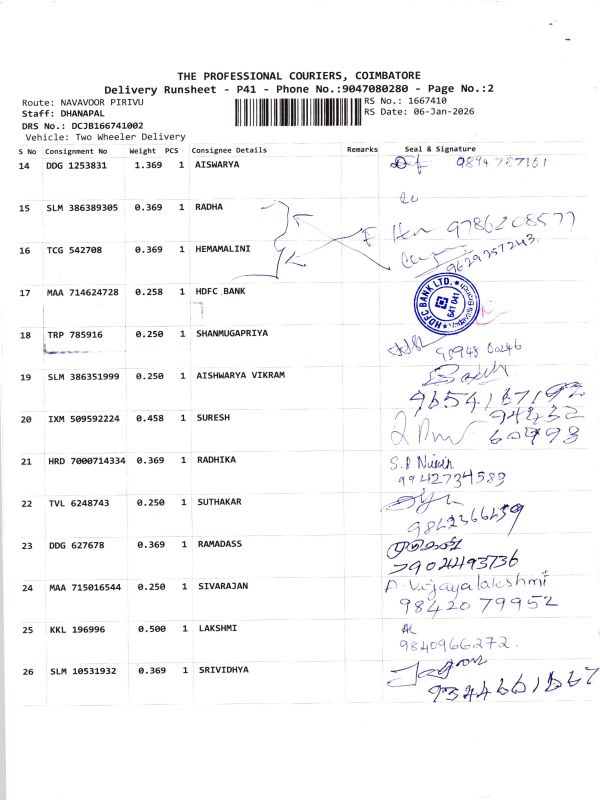 THE PROFESSIONAL COURIERS, COIMBATORE
Delivery Runsheet - P41 - Phone No.:9047080280 - Page No.:2
Route: NAVAVOOR PIRIVU
RS No.: 1667410
Staff: DHANAPAL
RS Date: 06-Jan-2026
DRS No.: DCJB166741002
Vehicle: Two Wheeler Delivery
S No Consignment No Weight PCS Consignee Details Remarks Seal & Signature
14 DDG 1253831 1.369 1 AISWARYA 9894 787101
15 SLM 386389305 0.369 1 RADHA
9786208577
16 TCG 542708 0.369 1 HEMAMALINI
9629257243.
17 MAA 714624728 0.258 1 HDFC BANK
HDFC BANK LTD.
641 041
18 TRP 785916 0.250 1 SHANMUGAPRIYA
95948 00246
19 SLM 386351999 0.250 1 AISHWARYA VIKRAM
9654167192
20 IXM 509592224 0.458 1 SURESH
94432
60993
21 HRD 7000714334 0.369 1 RADHIKA S.P
9942734589
22 TVL 6248743 0.250 1 SUTHAKAR
9842366459
23 DDG 627678 0.369 1 RAMADASS
7904493736
24 MAA 715016544 0.250 1 SIVARAJAN A. Vijayalakshmi
98420 79952
25 KKL 196996 0.500 1 LAKSHMI
9840966272.
26 SLM 10531932 0.369 1 SRIVIDHYA
9344661667